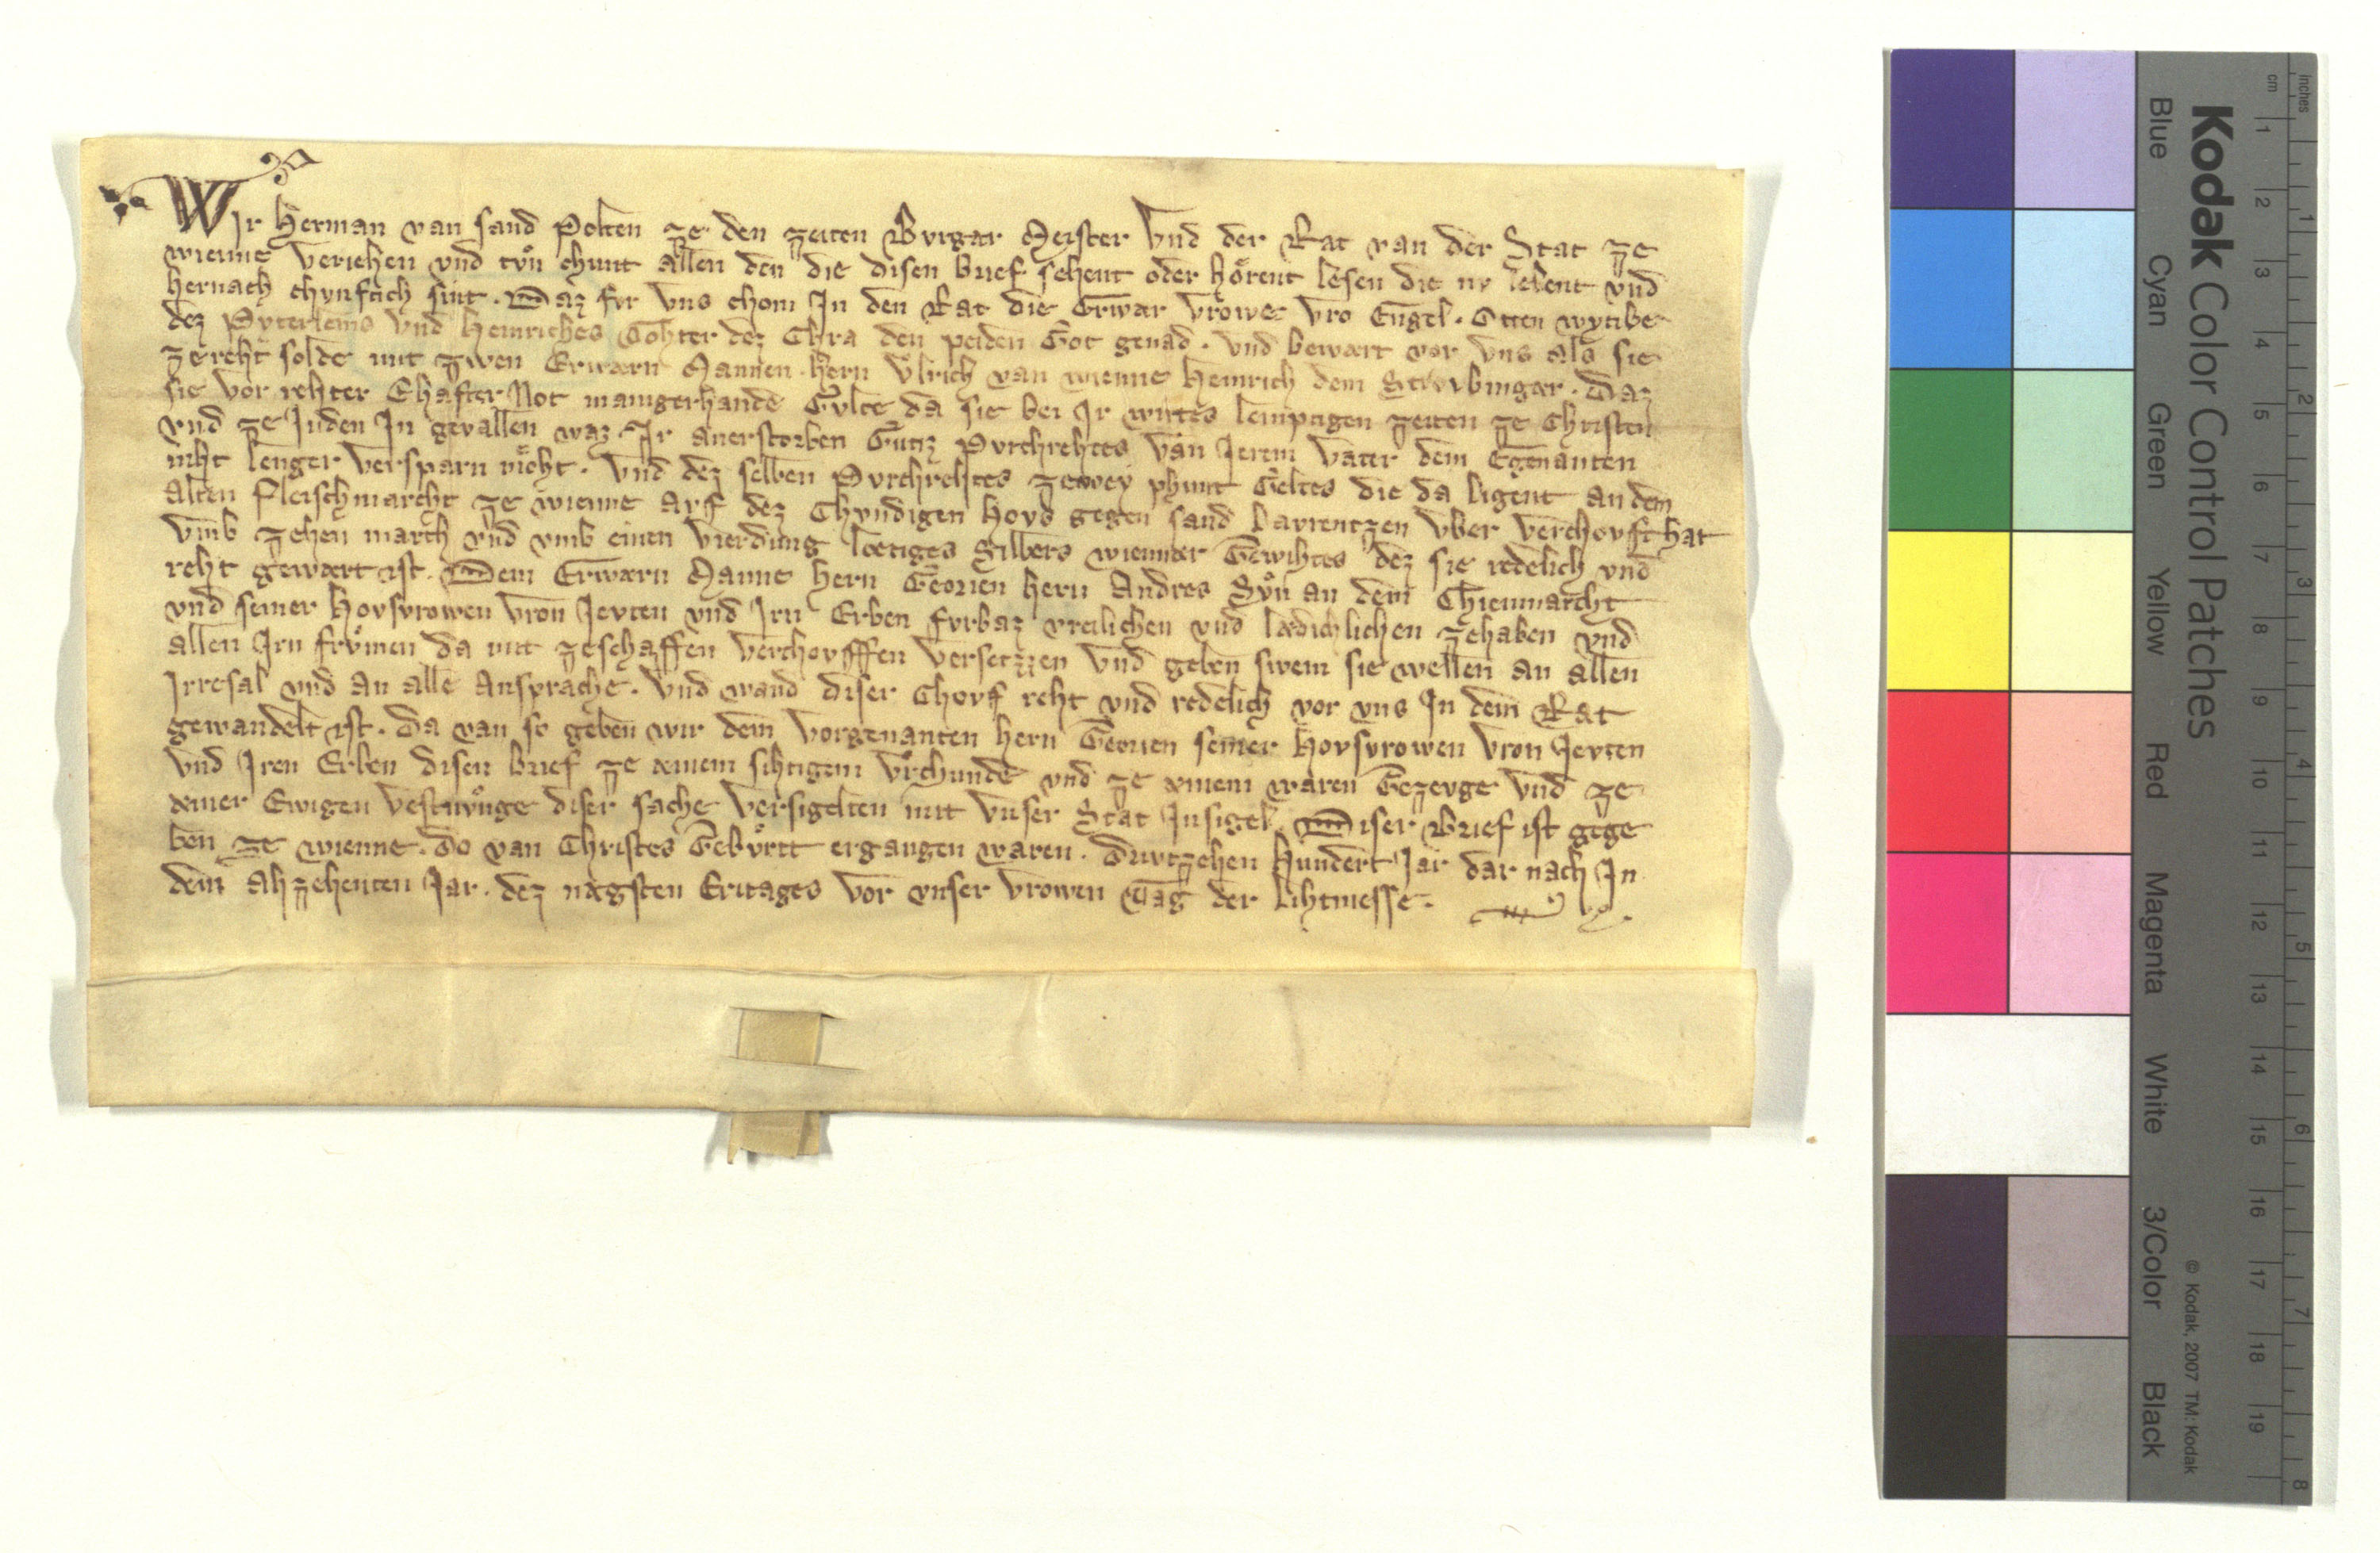 Wir Herman van sand Polten ze den zeiten Bvrgær Meister Vnd der Rat van der Stat ze
wienne Veriehen vnd tvͦn chunt allen den die disen brief sehent oder hoͤrent lesen die nv lebent vnd
hernach chvnftich sint. Daz fvr Vns chom In den Rat die Erwær Vrowe vro Engel. Otten wytibe
dez Pyterleins Vnd Heinriches Tohter dez Chra den peiden Got genad. Vnd bewært vor Vns als sie
zereht solde mit zwen Erwærn Mannen. Hern Vlrich van wienne Heinrich dem Strovbingær. Daz
sie vor rehter Ehafter Not manigerhande Gvlte da sie bei Ir wirtes lemptigen zeiten ze Christen
vnd ze Juden In gevallen waz. Ir anerstorben Gutz Pvrchrehtes van Jerem Vater dem Egenanten
niht lenger Versparn moͤht. Vnd dez selben Pvrchrehtes zewey phunt Geltes die da ligent an dem
Alten Fleischmarcht ze wienne avf dez Chvndigen Hovs gegen sand Lavrentzen vber verchovft hat
Vmb zehen march vnd vmb einen Vierdung lœtiges Silbers wiennær Gewihtes dez sie redelich vnd
reht gewært ist. Dem Erwærn Manne Hern Georien Hern Andres Svͦn an dem Chienmarcht
vnd seiner Hovsvrowen Vron Jevten vnd Irn Erben fvrbaz vreilichen vnd lædichlichen zehaben vnd
allen Irn frvͦmen da mit zeschaffen Verchovffen Versetzzen Vnd geben swem sie wellen an allen
Irresal vnd an alle Ansprache. Vnd wand diser Chovf reht vnd redelich vor vns In dem Rat
gewandelt ist. Da van so geben wir dem Vorgenanten Hern Georien seiner Hovsvrowen Vron Jevten
vnd Iren Erben disen brief ze æinem sihtigem Vrchunde vnd ze æinem waren Gezevge Vnd ze
æiner Ewigen Vestnvͦnge diser sache Versigelten mit Vnser Stat Insigel. Diser Brief ist gege
ben ze wienne. Do van Christes Gebvͦrtt ergangen waren. Drvtzehen Hundert Jar dar nach In
dem Ahzehenten Jar. dez nægsten Eritages Vor vnser Vrowen Tag der Lihtmesse.
Kodak Color Control Patches
© Kodak, 2007 TM: Kodak
Blue Cyan Green Yellow Red Magenta White 3/Color Black
inches 1 2 3 4 5 6 7 8
cm 1 2 3 4 5 6 7 8 9 10 11 12 13 14 15 16 17 18 19